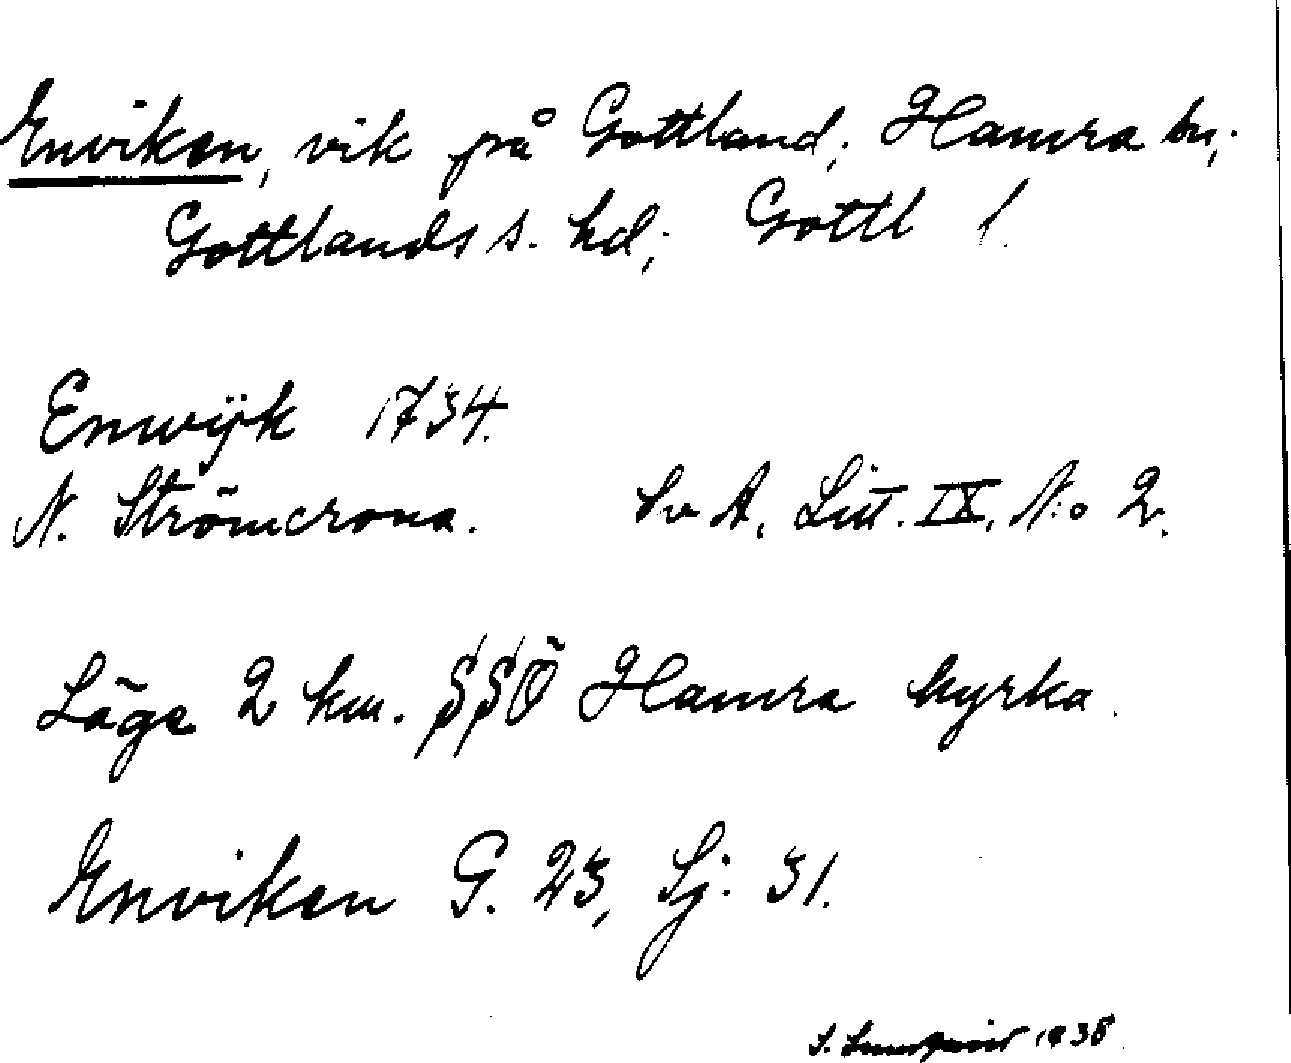 Enviken, vik på Gottland; Hamra sn;
Gottlands s. hd; Gottl l.
Enwijk 1734.
N. Strömcrona. Sv A. Litt. IX. N:o 2.
Läge 2 km. SSÖ Hamra kyrka.
Enviken G. 23, Sj: 31.
S. 1938